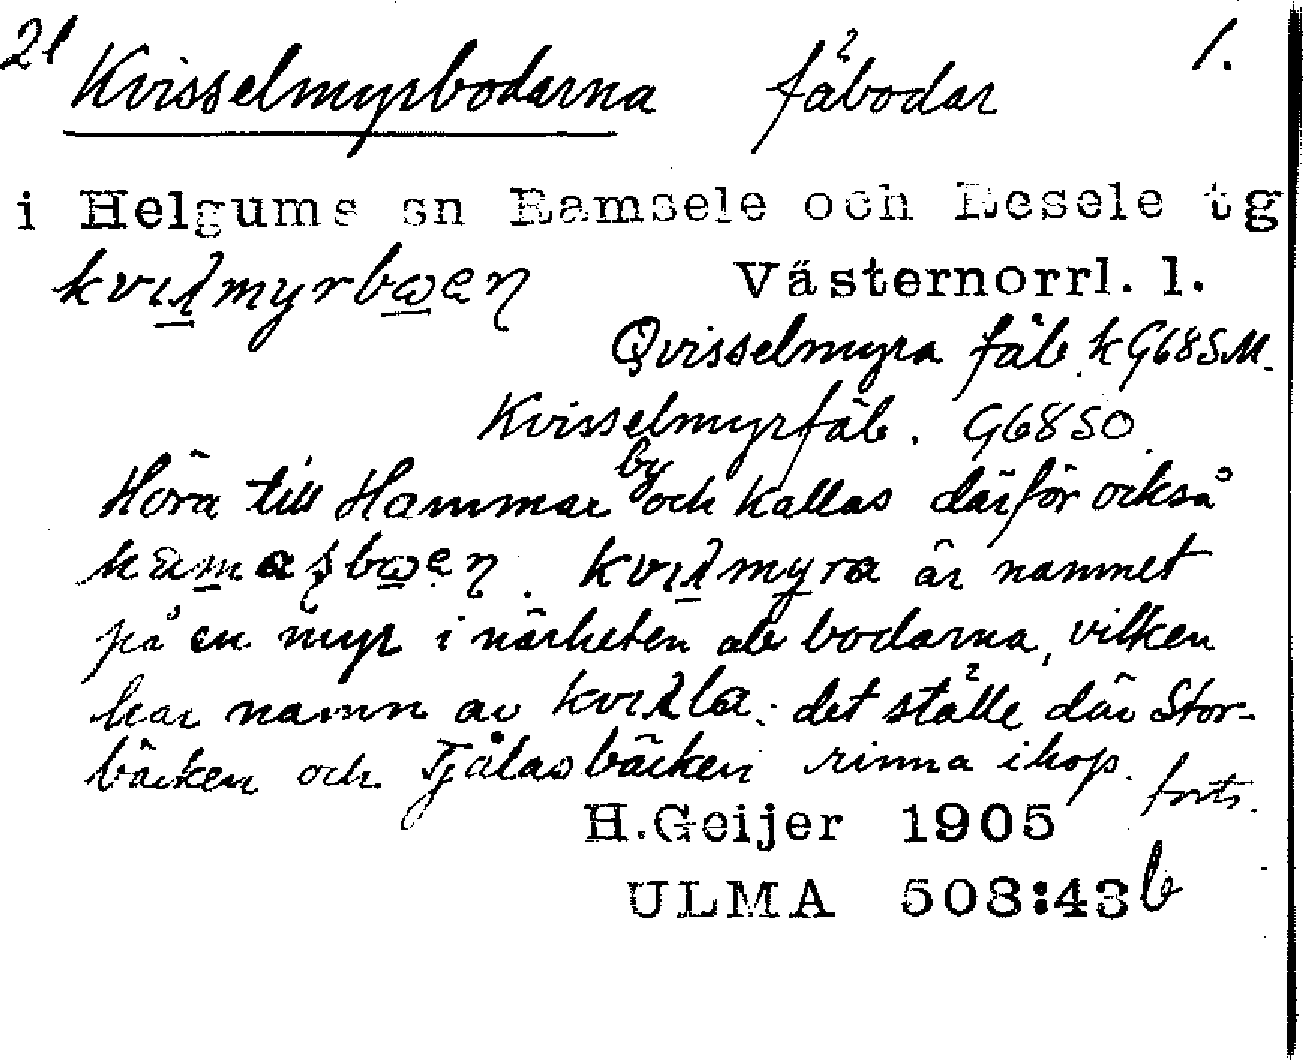 21 Kvisselmyrbodarna fäbodar 1.
i Helgums sn Ramsele och Resele tg
Västernorrl. l.
Qvisselmyra fäb. k G68SM.
Kvisselmyrfäb. G68SO
Höra till Hammar by och kallas därför också
är namnet
på en myr i närheten av bodarna, vilken
har namn av det ställe där Stor-
bäcken och Tjålasbäcken rinna ihop. forts.
H.Geijer 1905
ULMA 508:43b